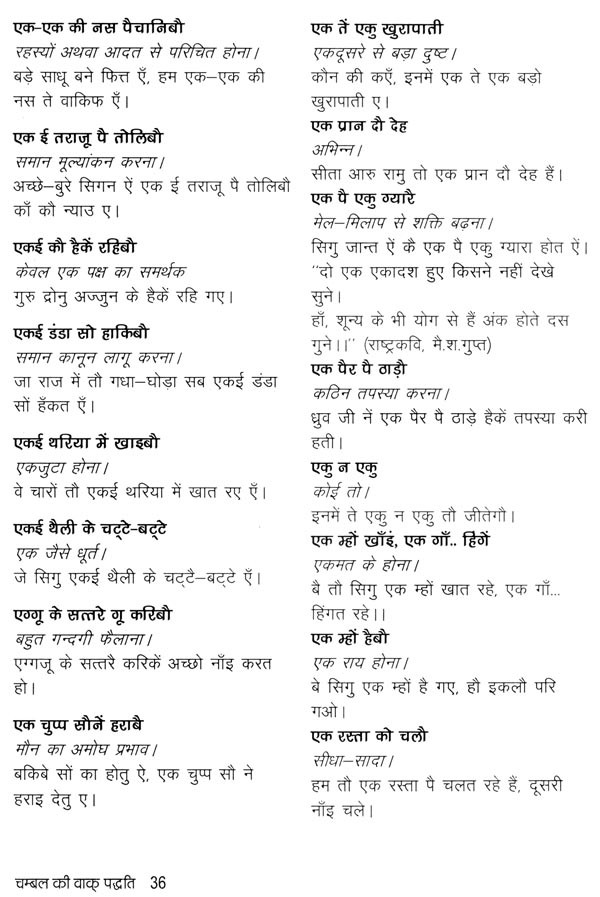 एक–एक की नस पैचानिबौ
रहस्यों अथवा आदत से परिचित होना।
बड़े साधू बने फित्त एँ, हम एक–एक की
नस ते वाकिफ एँ।
एक ई तराजू पै तोलिबौ
समान मूल्यांकन करना।
अच्छे–बुरे सिगन ऐं एक ई तराजू पै तोलिबौ
काँ कौ न्याउ ए।
एकई कौ हैकें रहिबौ
केवल एक पक्ष का समर्थक
गुरु द्रोनु अज्जुन के हैकें रहि गए।
एकई डंडा सो हाकिबौ
समान कानून लागू करना।
जा राज में तौ गधा–घोड़ा सब एकई डंडा
सों हँकत एँ।
एकई थरिया में खाइबौ
एकजुटा होना।
वे चारों तौ एकई थरिया में खात रए एँ।
एकई थैली के चट्टे-बट्टे
एक जैसे धूर्त।
जे सिगु एकई थैली के चट्टै–बट्टे एँ।
एग्गू के सत्तरे गू करिबौ
बहुत गन्दगी फैलाना।
एग्गजू के सत्तरै करिकें अच्छो नाँइ करत
हो।
एक चुप्प सौनें हराबै
मौन का अमोघ प्रभाव।
बकिबे सों का होतु ऐ, एक चुप्प सौ ने
हराइ देतु ए।
एक तें एकु खुरापाती
एकदूसरे से बड़ा दुष्ट।
कौन की कएँ, इनमें एक ते एक बड़ो
खुरापाती ए।
एक प्रान दौ देह
अभिन्न।
सीता आरु रामु तो एक प्रान दौ देह हैं।
एक पै एकु ग्यारै
मेल–मिलाप से शक्ति बढ़ना।
सिगु जान्त ऐं कै एक पै एकु ग्यारा होत ऐं।
"दो एक एकादश हुए किसने नहीं देखे
सुने।
हाँ, शून्य के भी योग से हैं अंक होते दस
गुने।।" (राष्ट्रकवि, मै.श.गुप्त)
एक पैर पै ठाड़ौ
कठिन तपस्या करना।
ध्रुव जी नें एक पैर पै ठाड़े हैकें तपस्या करी
हती।
एकु न एकु
कोई तो।
इनमें ते एकु न एकु तौ जीतेगौ।
एक म्हों खाँइं, एक गाँ.. हिंगें
एकमत के होना।
बै तौ सिगु एक म्हों खात रहे, एक गाँ...
हिंगत रहे।।
एक म्हों हैबौ
एक राय होना।
बे सिगु एक म्हों है गए, हौ इकलौ परि
गओ।
एक रस्ता को चलौ
सीधा–सादा।
हम तौ एक रस्ता पै चलत रहे हैं, दूसरी
नाँइ चले।
चम्बल की वाक् पद्धति 36